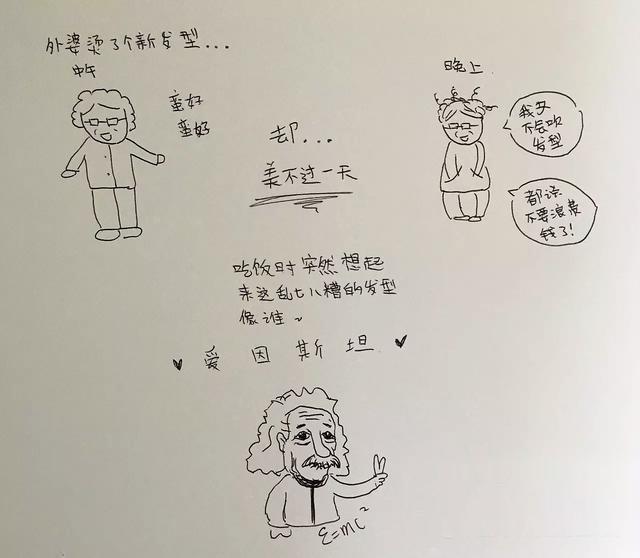 外婆烫了个新发型...
中午
蛮好
蛮好
却...
美不过一天
晚上
我又
不会吹
发型
都说
不要浪费
钱了!
吃饭时突然想起
来这乱七八糟的发型
像谁~
爱因斯坦
E=MC²